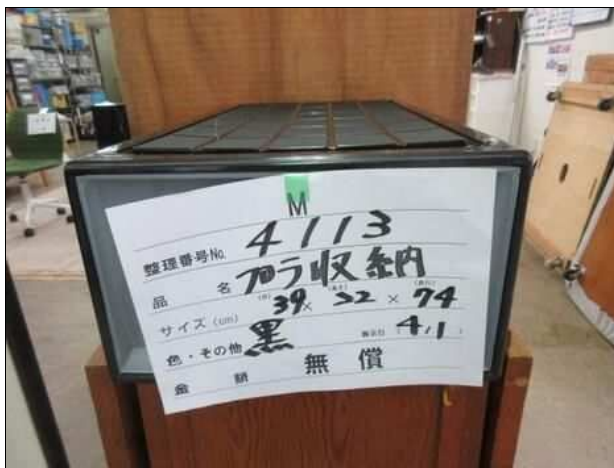 M
整理番号No. 4113
品 名 プラ収納
サイズ(cm) (W) 39 × (高さ) 32 × (奥行) 74
色・その他 黒 展示日 4/1
金 額 無償